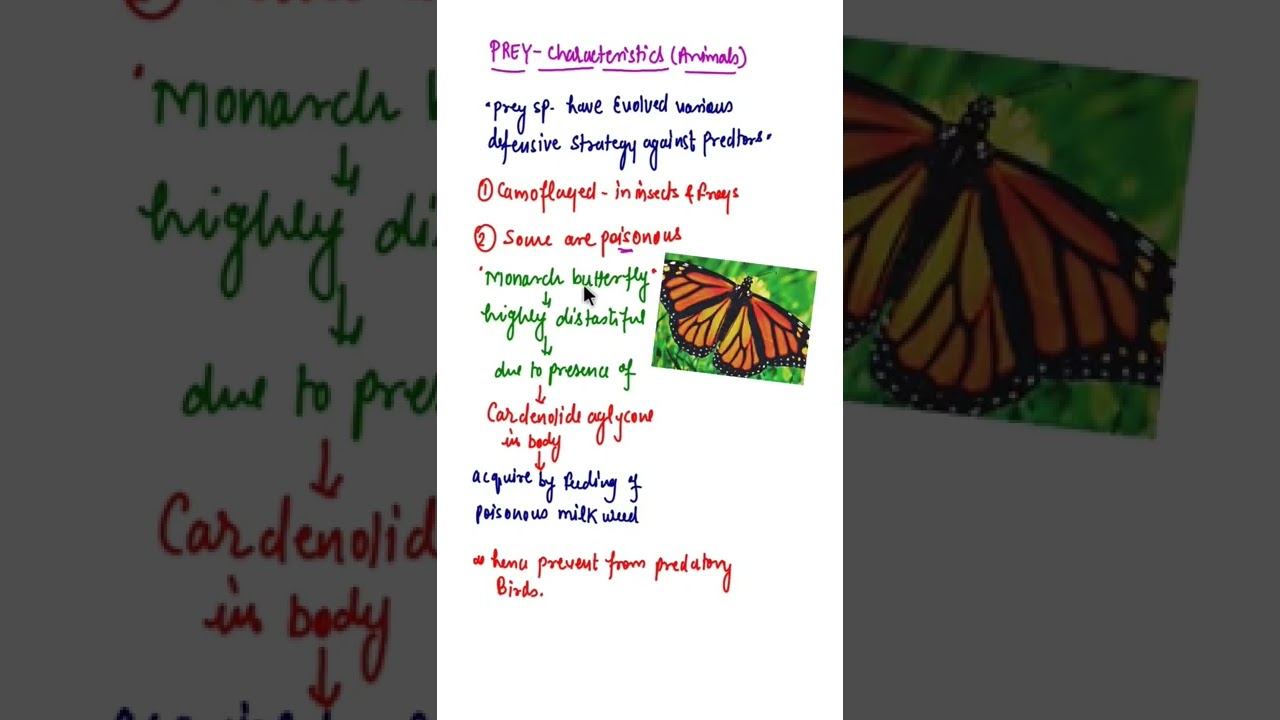 PREY- Characteristics (Animals)
"prey sp. have Evolved various
defensive strategy against predtors"
① Camoflayed - in insects & frogs
② Some are poisonous
"Monarch butterfly"
highly distastiful
due to presence of
Cardenolide aglycone
in body
acquire by feeding of
poisonous milk weed
hence prevent from predatory
Birds.
Monarch b
highly dis
due to pre
Cardenolid
in body